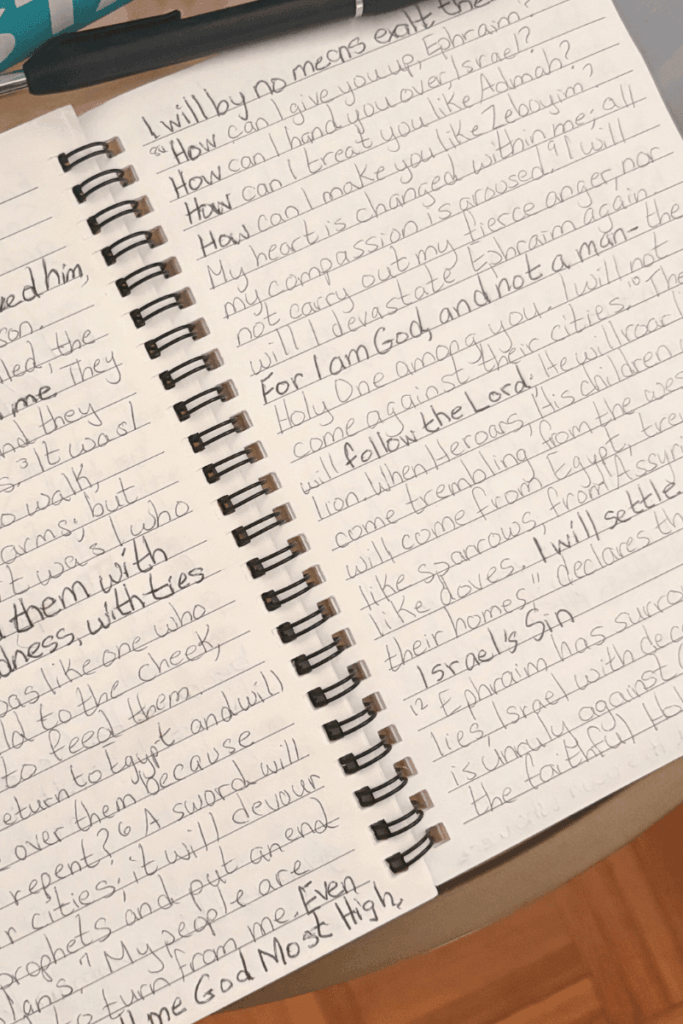 ST
ved him,
son.
lled, the
me. They
nd they
s. ³ It was I
o walk,
arms; but
it was I who
them with
dness, with ties
was like one who
ld to the cheek,
to feed them.
eturn to Egypt and will
over them because
repent? ⁶ A sword will
r cities; it will devour
prophets and put an end
lans. ⁷ My people are
to turn from me. Even
ll me God Most High,
I will by no means exalt the
⁸ How can I give you up, Ephraim?
How can I hand you over Israel?
How can I treat you like Admah?
How can I make you like Zeboyim?
My heart is changed within me; all
my compassion is aroused. ⁹ I will
not carry out my fierce anger, nor
will I devastate Ephraim again.
For I am God, and not a man- the
Holy One among you. I will not
come against their cities. ¹⁰ The
will follow the Lord. He will roar l
lion. When He roars, His children
come trembling from the wes
will come from Egypt, tre
like sparrows, from Assyri
like doves. I will settle
their homes," declares th
Israel's Sin
¹² Ephraim has surro
lies, Israel with dec
is unruly against
the faithful Ho